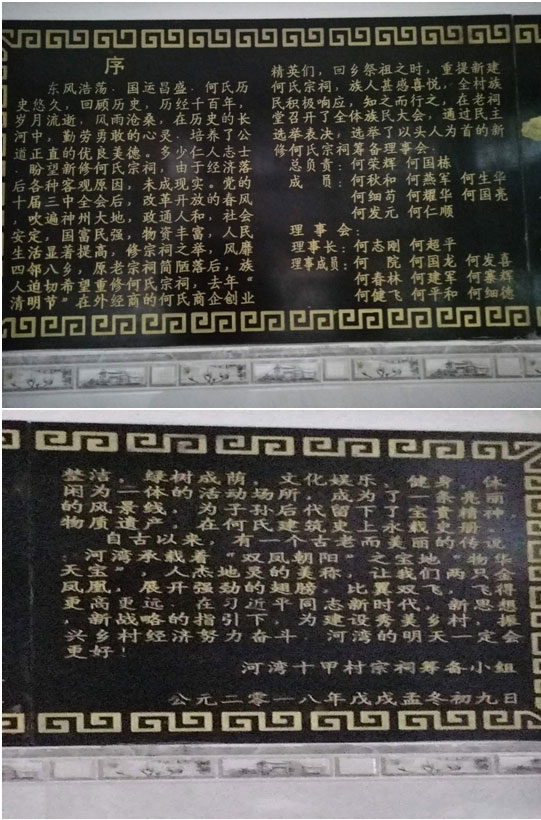 序
东风浩荡．国运昌盛．何氏历
史悠久，回顾历史，历经千百年，
岁月流逝，风雨沧桑，在历史的长
河中，勤劳勇敢的心灵．培养了公
道正直的优良美德。多少仁人志士
．盼望新修何氏宗祠，由于经济落
后各种客观原因，未成现实。党的
十届三中全会后，改革开放的春风
，吹遍神州大地，政通人和，社会
安定，国富民强，物资丰富，人民
生活显着提高，修宗祠之举，风靡
四邻八乡，原老宗祠简陋落后，族
人迫切希望重修何氏宗祠，去年“
清明节”在外经商的何氏商企创业
精英们，回乡祭祖之时，重提新建
何氏宗祠，族人甚感喜悦，全村族
民积极响应，知之而行之，在老祠
堂召开了全体族民大会，通过民主
选举表决，选举了以头人为首的新
修何氏宗祠筹备理事会：
总负责：何荣辉 何国栋
成 员：何秋和 何燕军 何生华
何细苟 何耀华 何国亮
何发元 何仁顺
理 事 会：
理 事 长：何志刚 何超平
理事成员：何 院 何国龙 何发喜
何春林 何建军 何赛辉
何健飞 何平和 何细德
整洁，绿树成荫，文化娱乐、健身、休
闲为一体的活动场所，成为了一条亮丽
的风景线。为子孙后代留下了宝贵精神
物质遗产。在何氏建筑史上永载史册。
自古以来，有一个古老而美丽的传说
．河湾承载着“双凤朝阳”之宝地“物华
天宝”、人杰地灵的美称，让我们两只金
凤凰，展开强劲的翅膀，比翼双飞，飞得
更高更远．在习近平同志新时代，新思想
，新战略的指引下，为建设秀美乡村，振
兴乡村经济努力奋斗．河湾的明天一定会
更好！
河湾十甲村宗祠筹备小组
公元二零一八年戊戌孟冬初九日